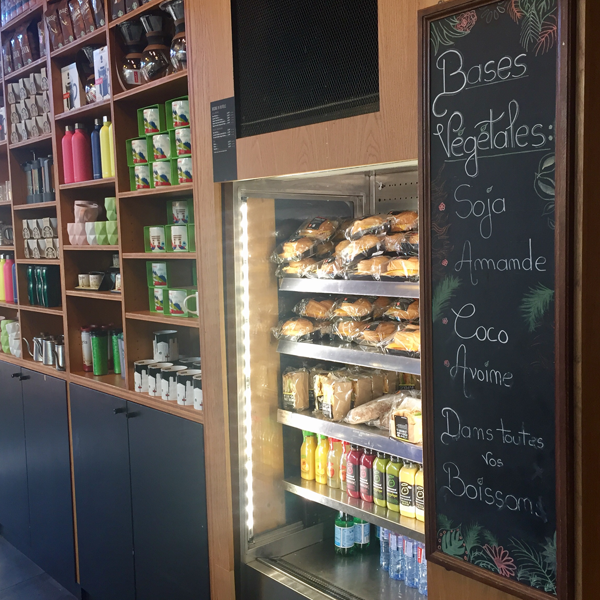 Bases
Végétales:
Soja
Amande
Coco
Avoine
Dans toutes
vos
Boissons.